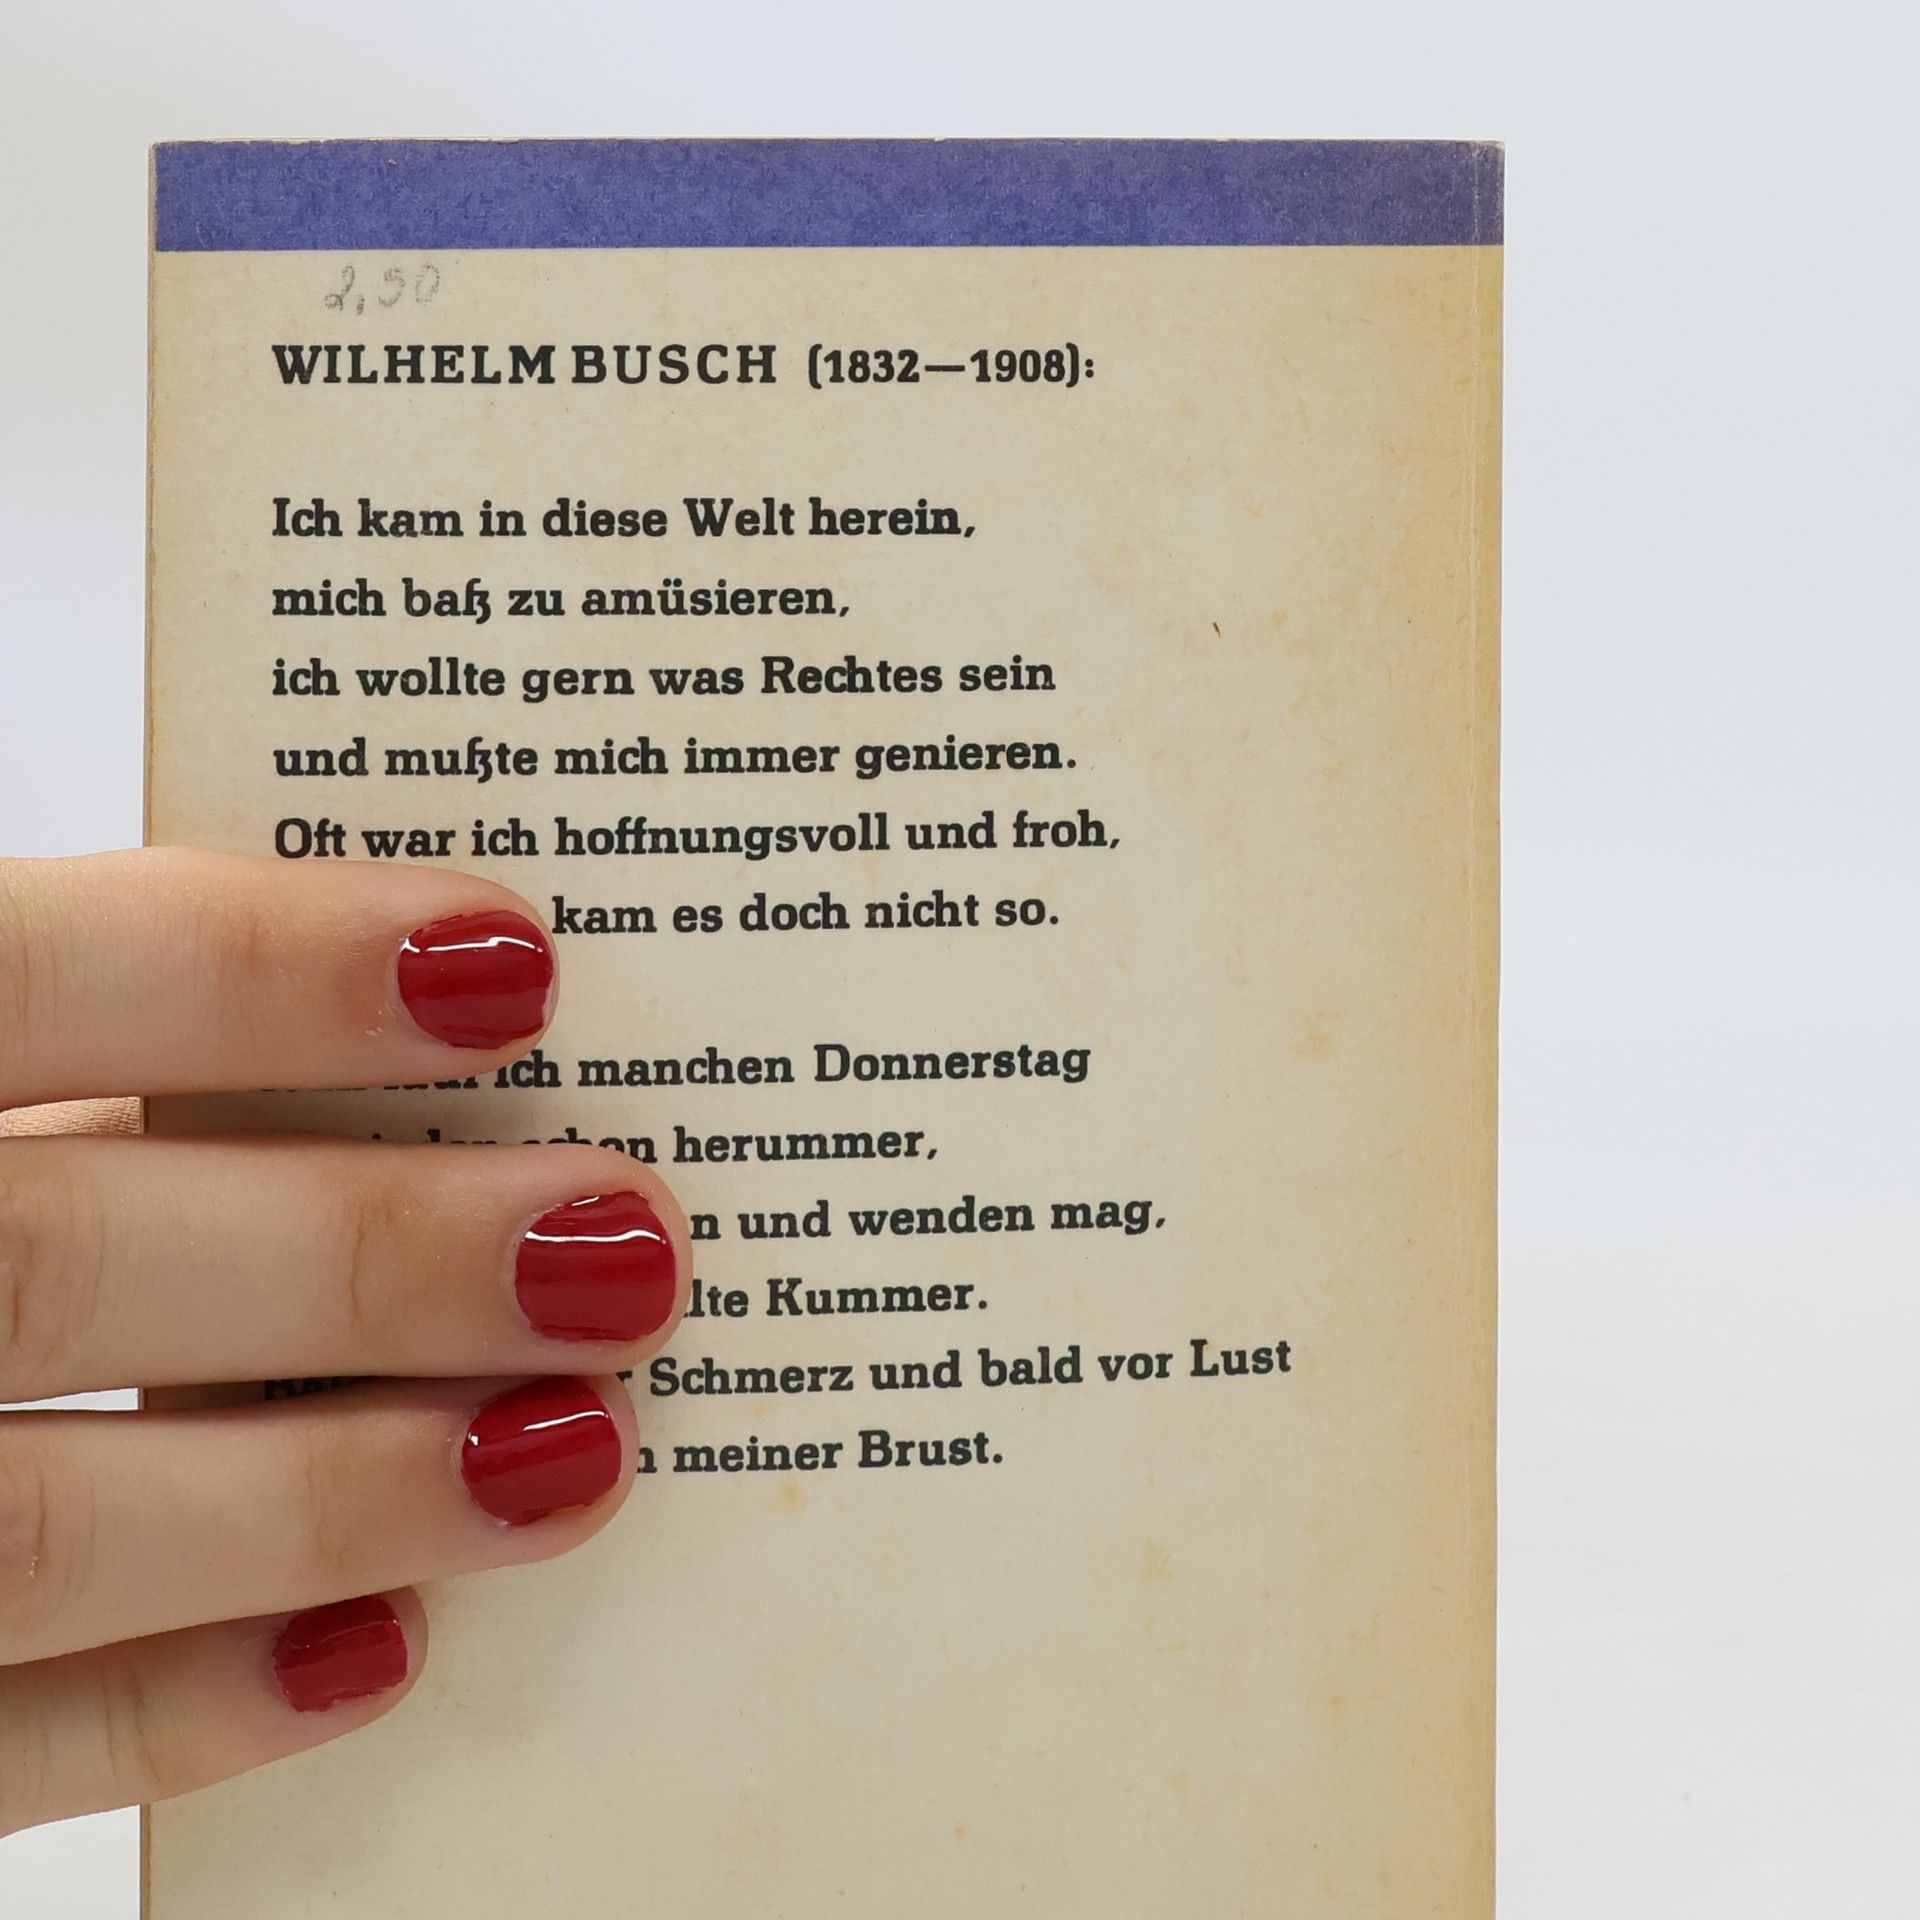 2,90
WILHELM BUSCH (1832—1908):
Ich kam in diese Welt herein,
mich baß zu amüsieren,
ich wollte gern was Rechtes sein
und mußte mich immer genieren.
Oft war ich hoffnungsvoll und froh,
kam es doch nicht so.
ich manchen Donnerstag
schon herummer,
und wenden mag,
Kummer.
Schmerz und bald vor Lust
meiner Brust.